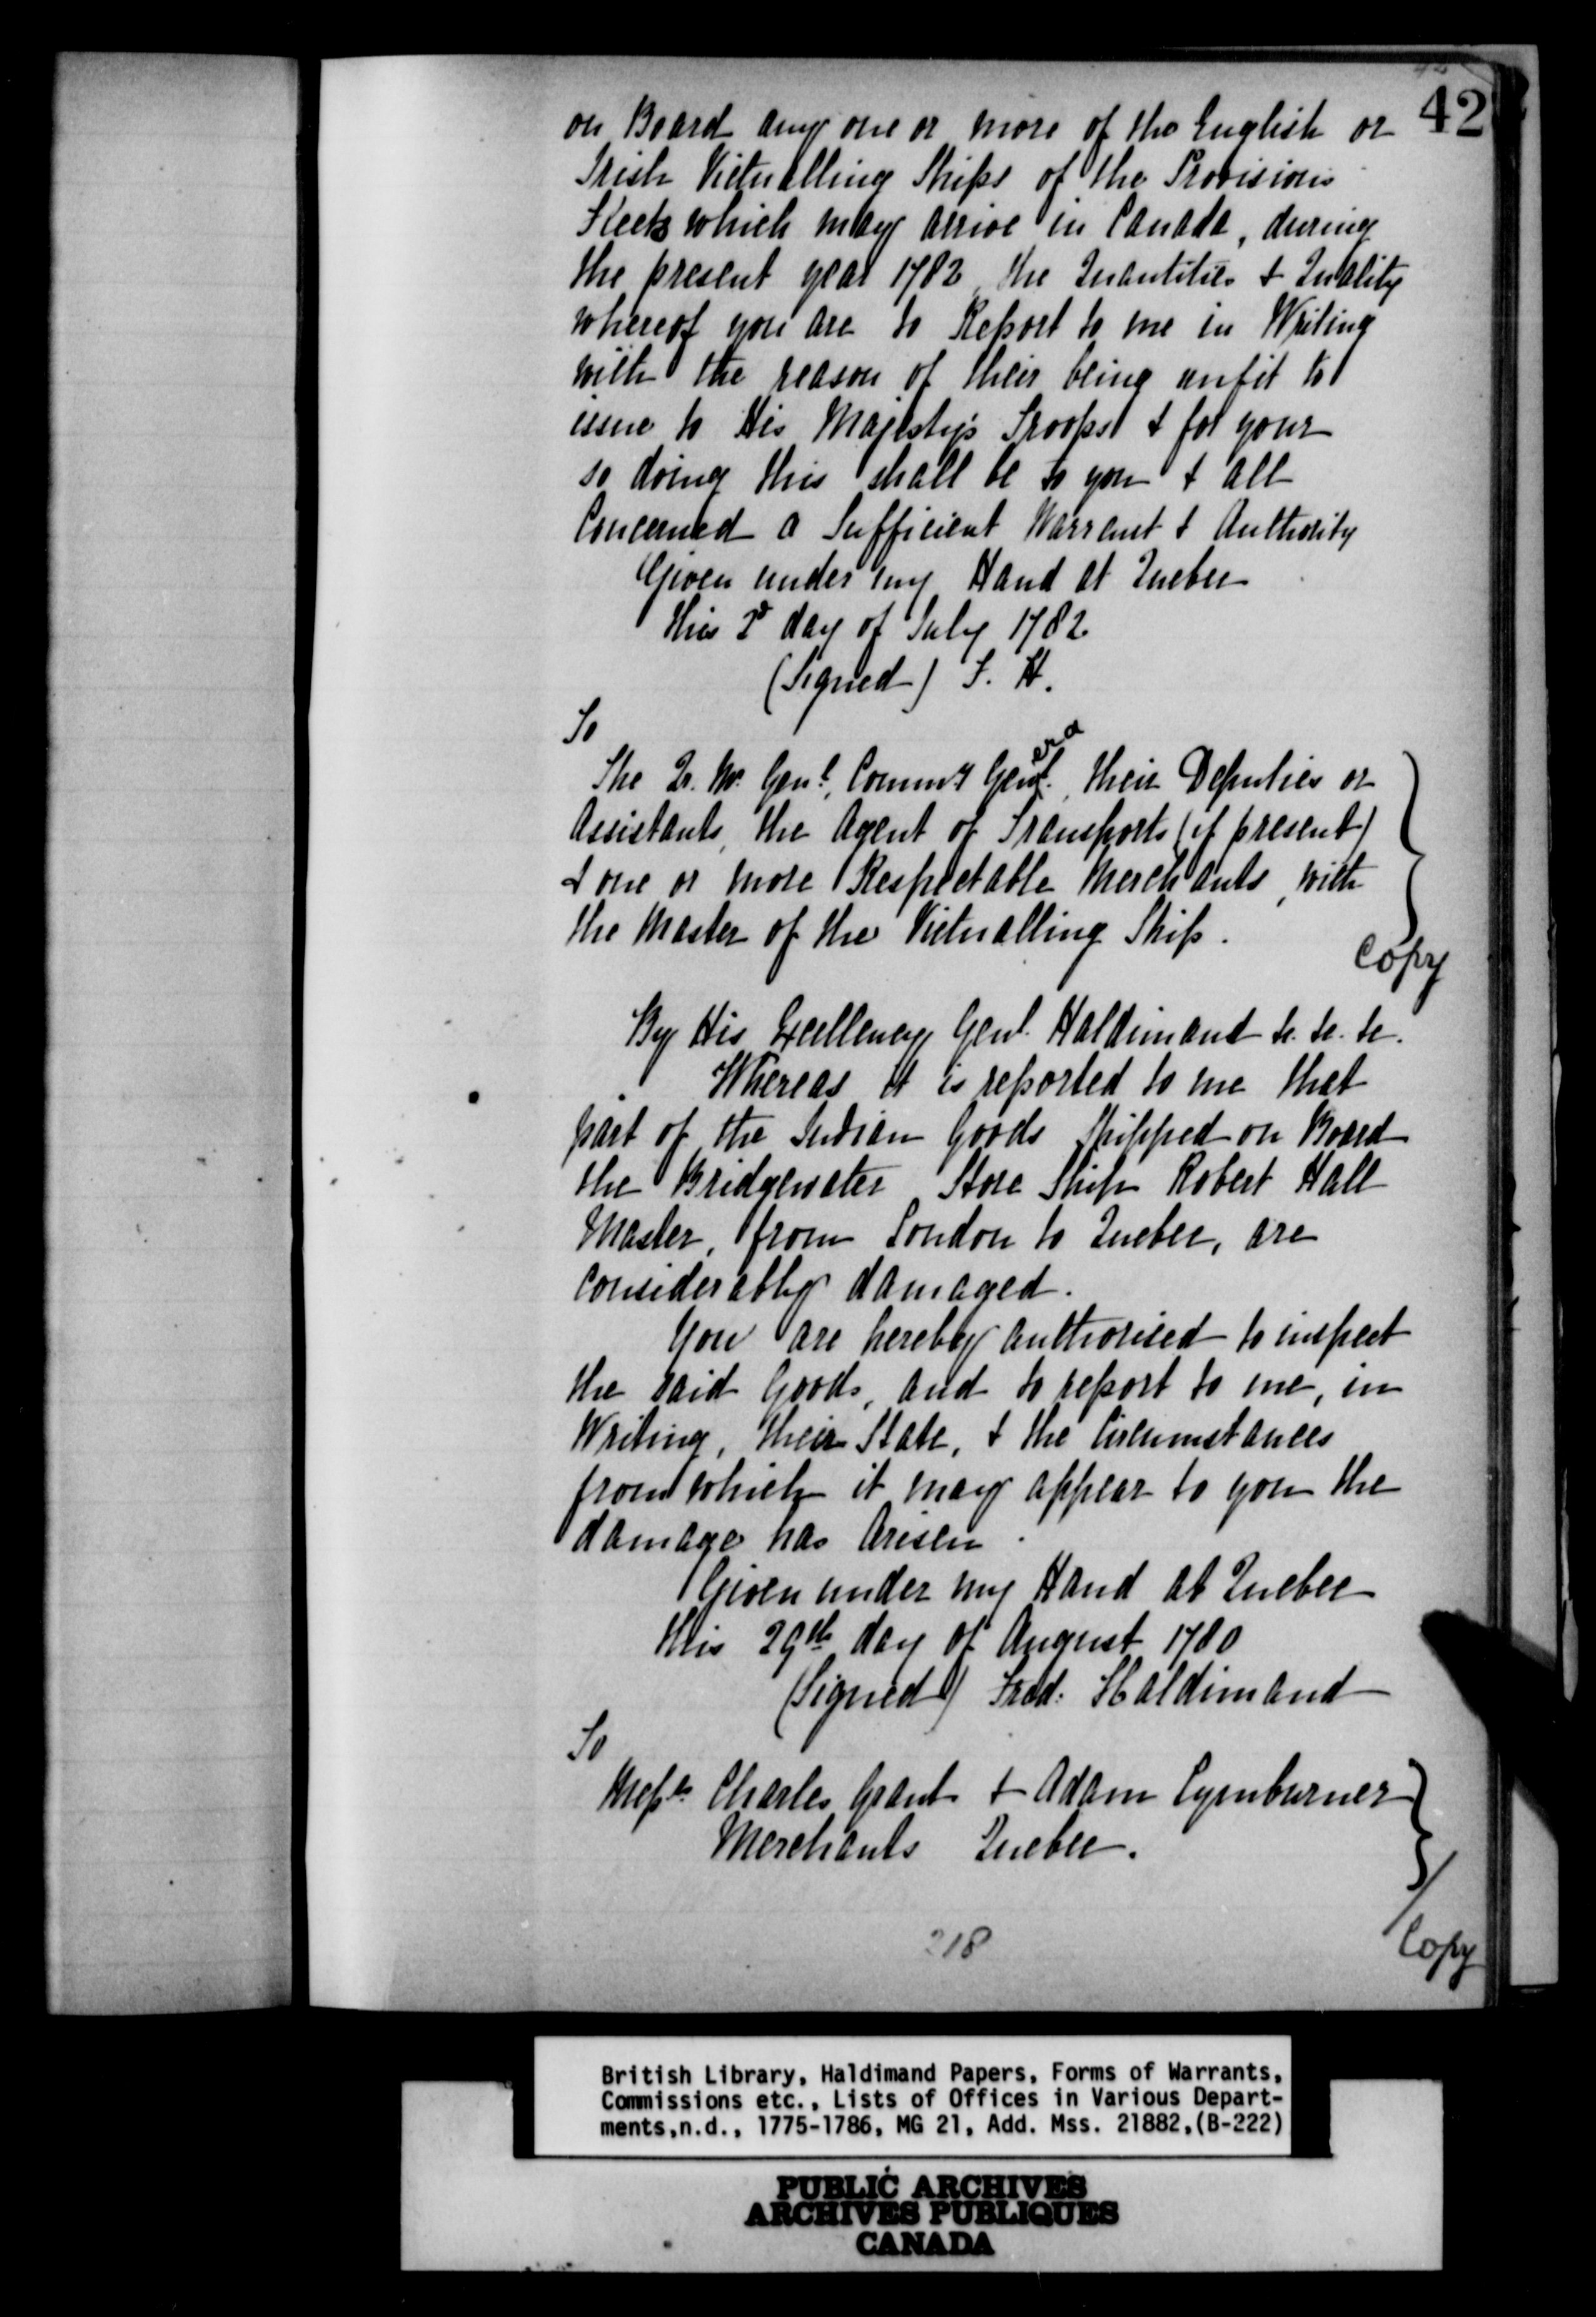 42
on Board any one or more of the English or
Irish Victualling Ships of the Provision
Fleets which may arrive in Canada, during
the present year 1782, the Quantities & Quality
whereof you are to Report to me in Writing
with the reason of their being unfit to
issue to His Majesty's Troops & for your
so doing this shall be to you & all
Concerned a Sufficient Warrant & Authority
Given under my Hand at Quebec
this 2d day of July 1782
(Signed) F. H.
To
The Qr. Mr. Genl., Commy Genera, their Deputies or
Assistants, the Agent of Transports (if present)
& one or more Respectable Merchants, with
the Master of the Victualling Ship.
Copy
By His Excellency Genl. Haldimand &c. &c. &c.
Whereas it is reported to me that
part of the Indian Goods Shipped on Board
the Bridgewater Store Ship Robert Hall
Master, from London to Quebec, are
considerably damaged.
You are hereby authorised to inspect
the said Goods, and to report to me, in
Writing, their State, & the Circumstances
from which it may appear to you the
damage has Arisen.
Given under my Hand at Quebec
this 29th day of August 1780
(Signed) Fred: Haldimand
To
Messrs Charles Grant & Adam Lymburner
Merchants Quebec.
Copy
218
British Library, Haldimand Papers, Forms of Warrants,
Commissions etc., Lists of Offices in Various Depart-
ments,n.d., 1775-1786, MG 21, Add. Mss. 21882,(B-222)
PUBLIC ARCHIVES
ARCHIVES PUBLIQUES
CANADA